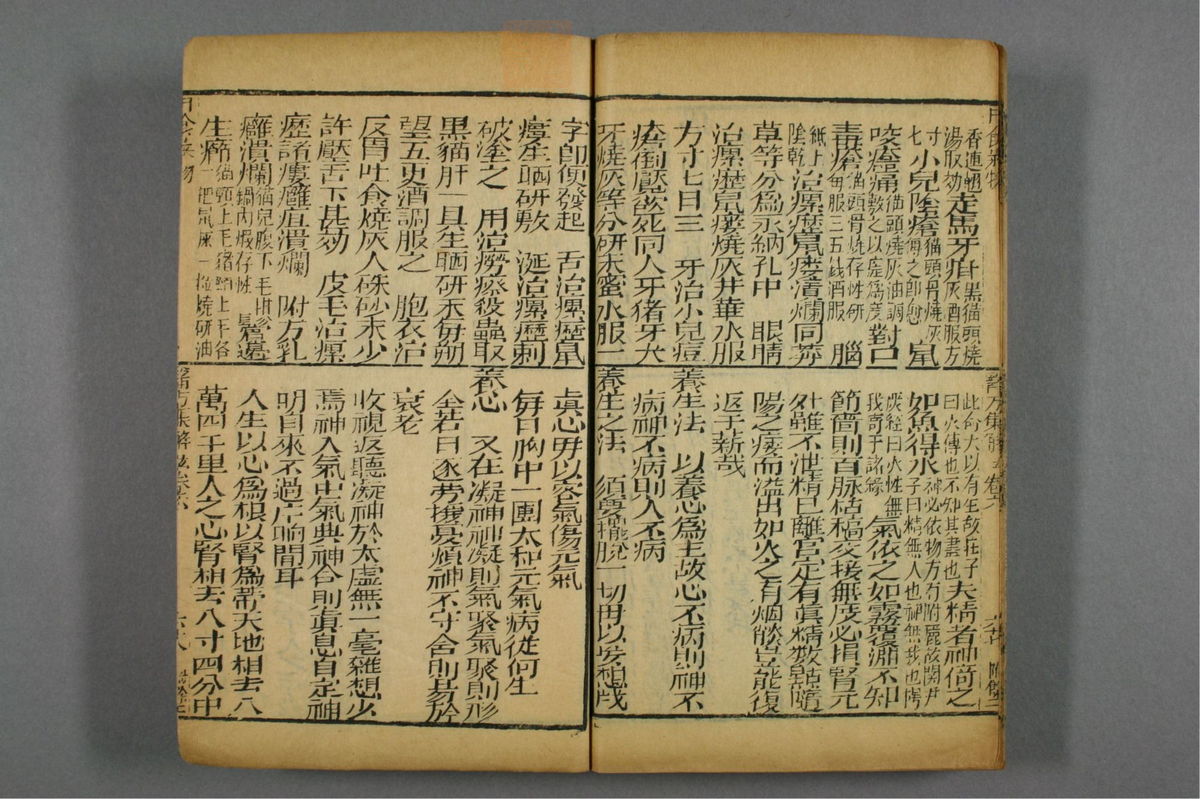 香連翹走馬牙疳黑猫頭燒
湯取効灰酒服方
寸七小兒陰瘡猫頭骨燒灰傅之即愈鼠
咬瘡痛猫頭燒灰油調敷之以瘥為度對口
毒瘡猫頭骨燒存性研每服三五錢酒服 腦
紙上陰乾治瘰癧鼠瘻潰爛同莽
草等分為末納孔中 眼睛
治瘰癧鼠瘻燒灰井華水服
方寸七日三 牙治小兒痘
瘡倒黶欲死同人牙猪牙犬
牙燒灰等分研末蜜水服一
此俗火以有生故莊子曰火傳也不知其盡也夫精者神倚之
如魚得水神必依物方有附麗故関尹子曰精無人也神無我也楞
嚴經曰火性無我寄于諸緣 氣依之如霧覆淵不知
節嗇則百脉枯槁交接無度必損腎元
外雖不泄精已離宮定有真精數點隨
陽之痿而溢出如火之有烟燄豈能復
返于薪哉
養生法 以養心為主故心不病則神不
病神不病則人不病
養生之法 須要撇脫一切毋以妄想戕
字即便發起 舌治瘰癧鼠
瘻生晒研敷 涎治瘰癧刺
破塗之 用治癆瘵殺蟲取
黑猫肝一具生晒研末每朔
望五更酒調服之 胞衣治
反胃吐食燒灰入硃砂末少
許壓舌下甚効 皮毛治瘰
癧諸瘻癰疽潰爛 附方乳
癰潰爛猫兒腹下毛坩堝內煅存性 鬢邊
生癤猫頸上毛猪頸上毛各一把鼠屎一粒燒研油
真心毋以客氣傷元氣
每日胸中一團太和元氣病從何生
養心 又在凝神神凝則氣聚氣聚則形
全若日逐勞攘憂煩神不守舍則易於
衰老
收視返聽凝神於太虛無一毫雜想少
焉神入氣中氣與神合則真息自定神
明自來不過片晌間耳
人生以心為根以腎為蒂天地相去八
萬四千里人之心腎相去八寸四分中
醫方集解